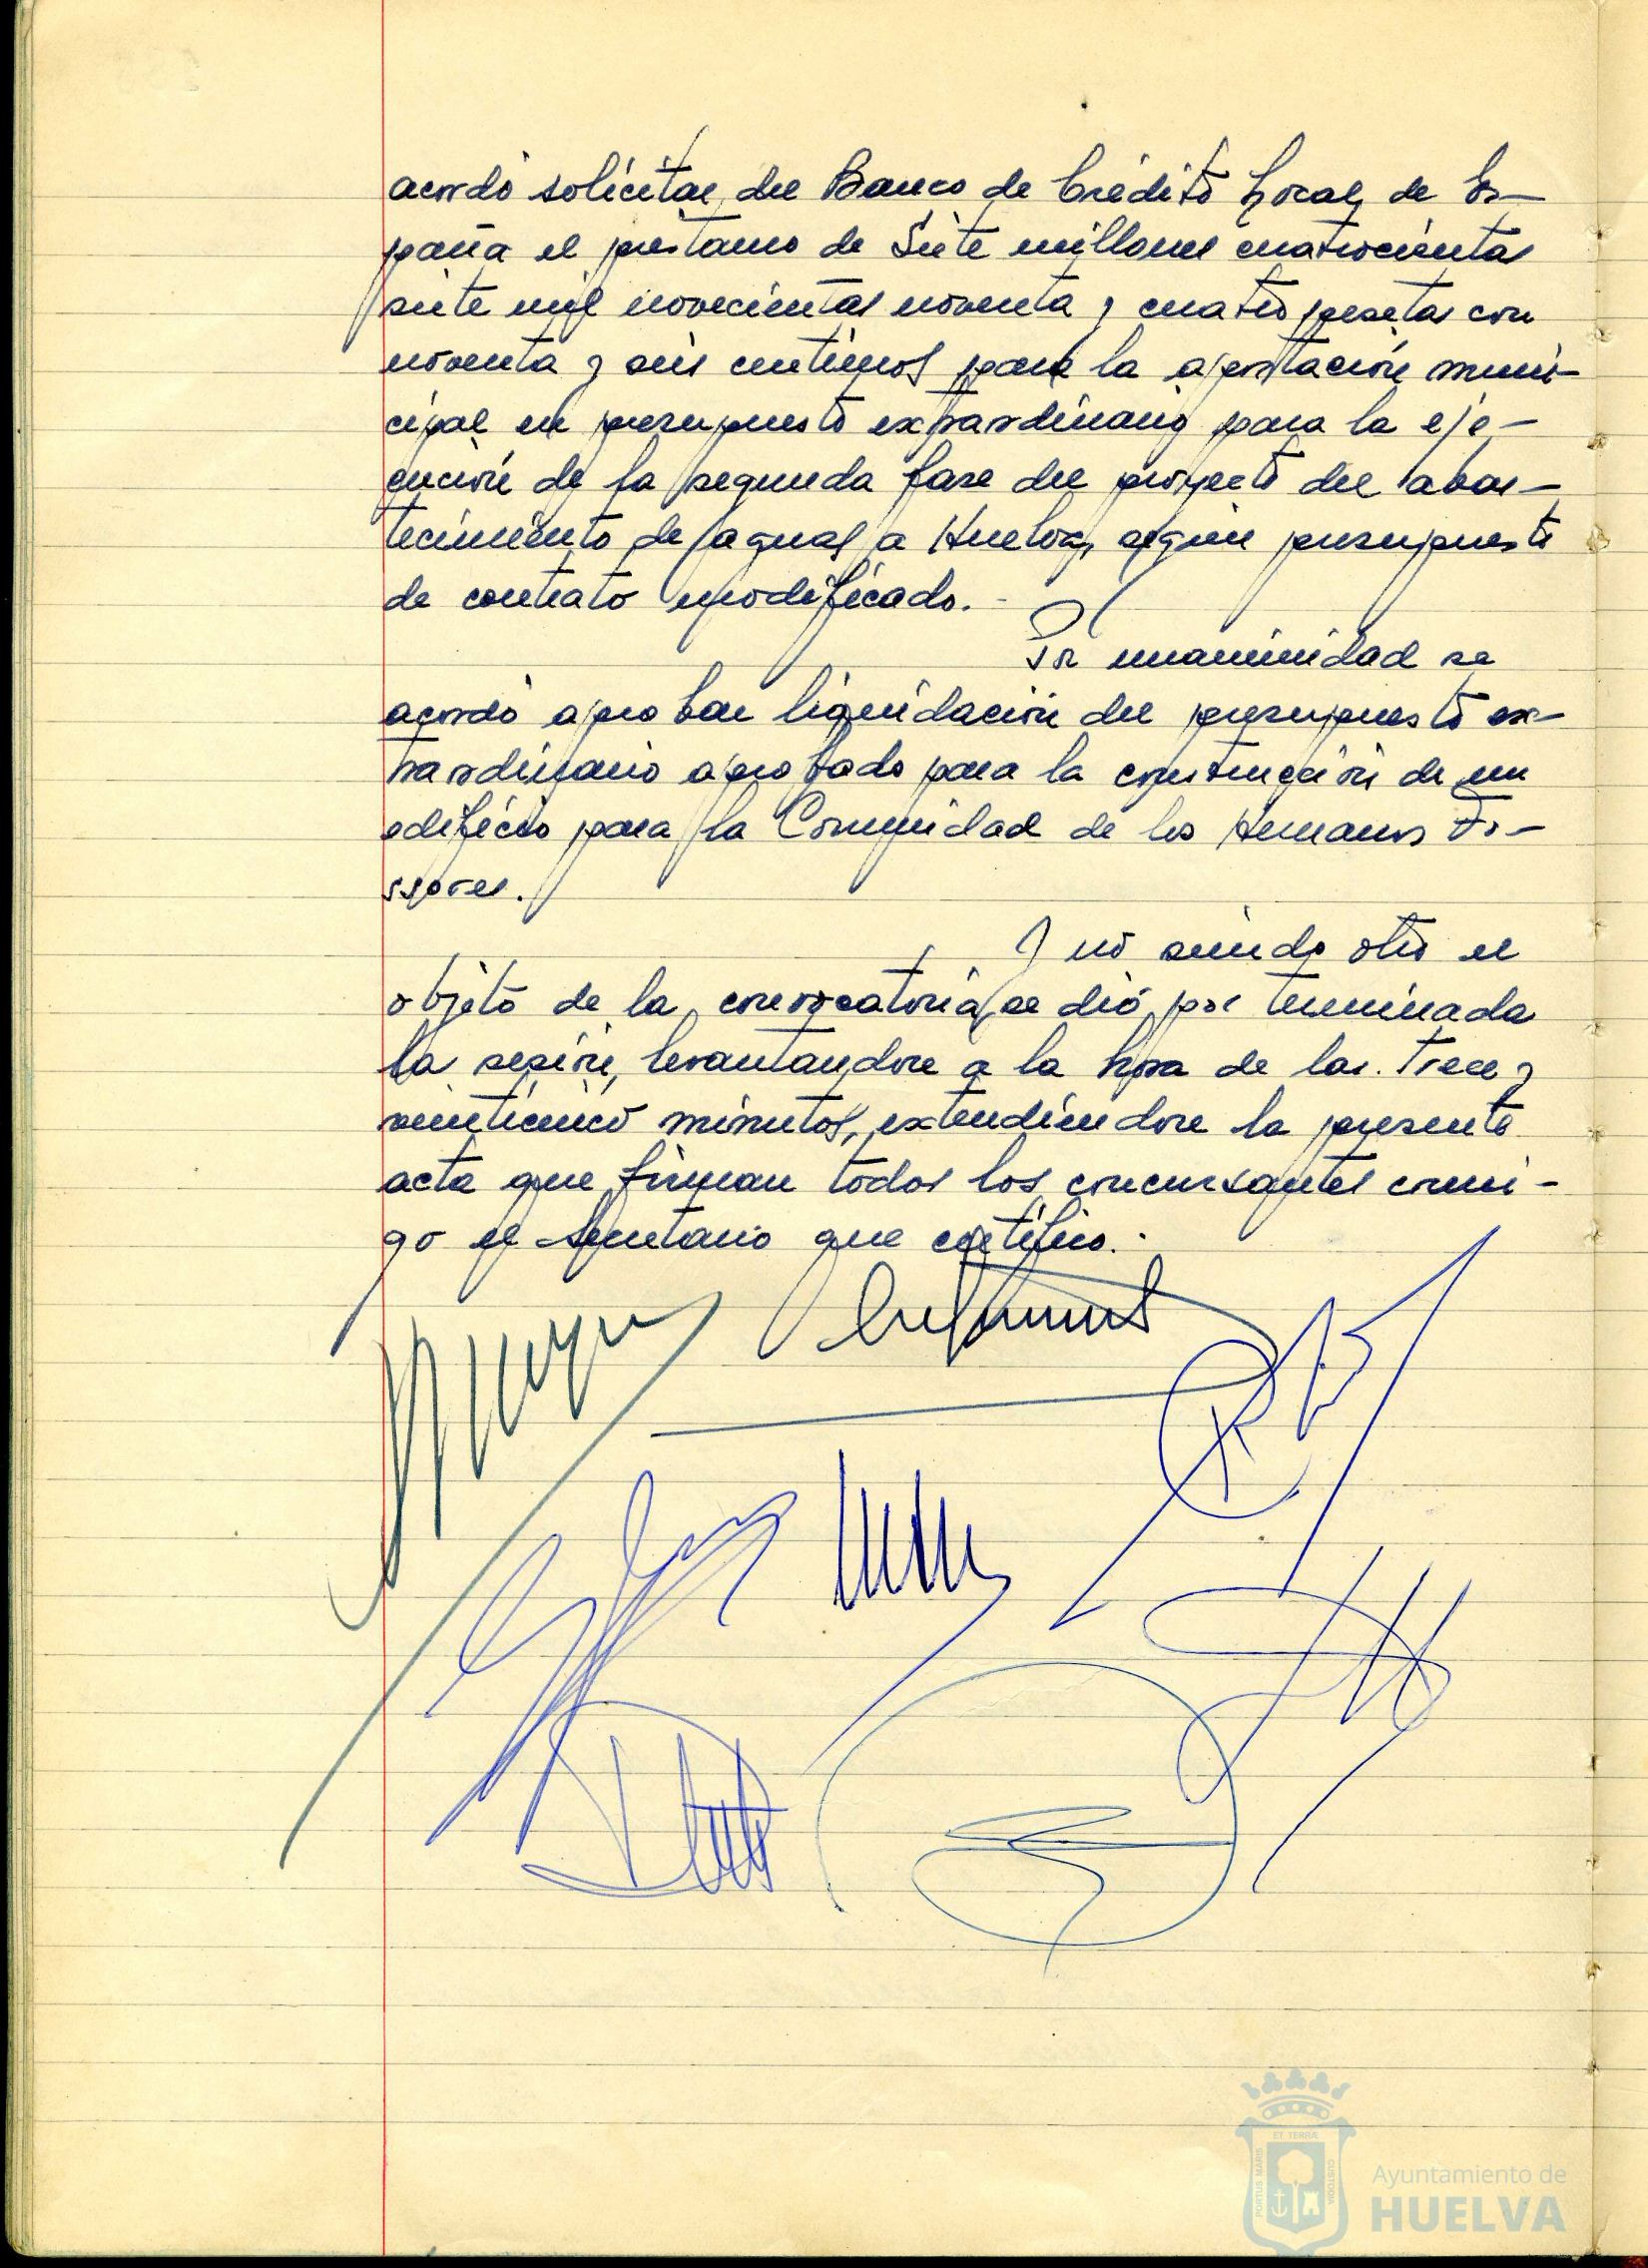 acordó solicitar del Banco de Crédito Local de Es-
paña el préstamo de Siete millones cuatrocientas
siete mil novecientas noventa y cuatro pesetas con
noventa y seis centimos para la aportación muni-
cipal en presupuesto extraordinario para la eje-
cución de la segunda fase del proyecto del abas-
tecimiento de aguas a Huelva, según presupuesto
de contrato modificado.-
Por unanimidad se
acordó aprobar liquidación del presupuesto ex-
traordinario aprobado para la construcción de un
edificio para la Comunidad de los Hermanos Fo-
ssores.
Y no siendo otro el
objeto de la convocatoria, se dió por terminada
la sesión, levantandose a la hora de las trece y
veinticinco minutos, extendiendose la presente
acta que firman todos los concursantes conmi-
go el Secretario que certifico.-
ET TERRA
PORTUS MARIS
CUSTODIA
Ayuntamiento de
HUELVA